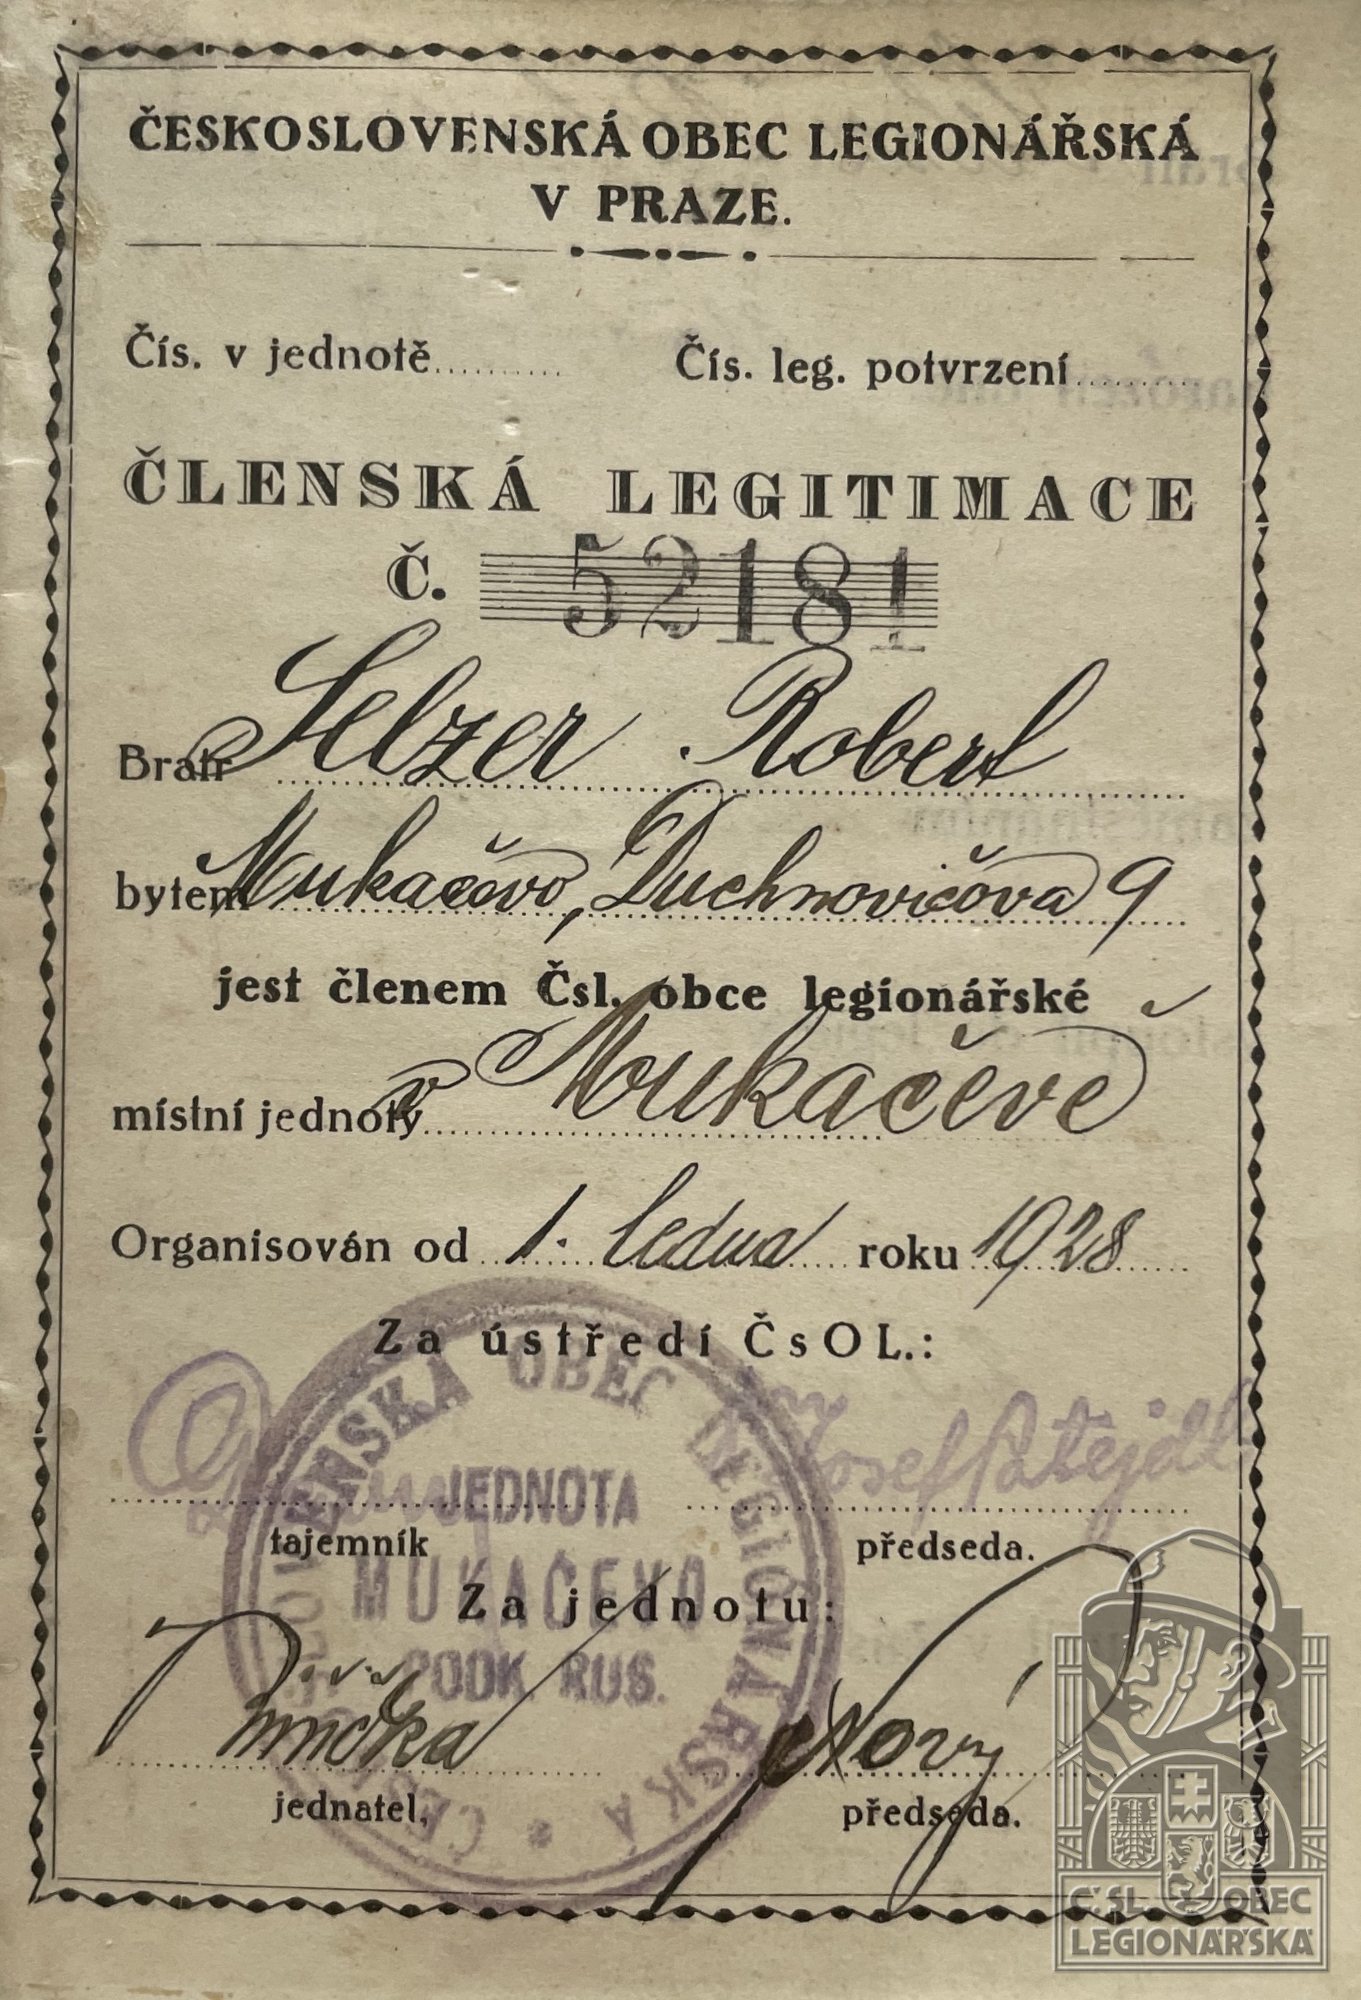 ČESKOSLOVENSKÁ OBEC LEGIONÁŘSKÁ
V PRAZE.
Čís. v jednotě.......... Čís. leg. potvrzení..........
ČLENSKÁ LEGITIMACE
Č. 52181
Bratr Selzer Robert
bytem Mukačevo, Duchnovičova 9
jest členem Čsl. obce legionářské
místní jednoty v Mukačevě
Organisován od 1. ledna roku 1928
Za ústředí ČsOL.:
Josef Patejdl
tajemník předseda.
Za jednotu:
Růžička Nový
jednatel, předseda.
ČESKOSLOVENSKÁ OBEC LEGIONÁŘSKÁ
JEDNOTA
MUKAČEVO
PODK. RUS.
Č.SL. OBEC
LEGIONÁŘSKÁ